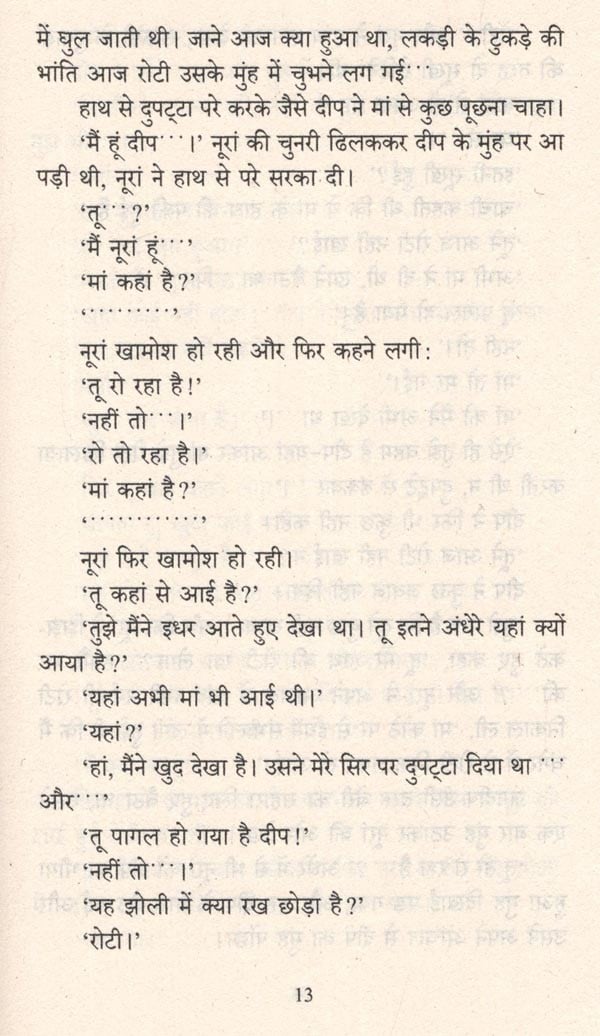 में घुल जाती थी। जाने आज क्या हुआ था, लकड़ी के टुकड़े की
भांति आज रोटी उसके मुंह में चुभने लग गई!
हाथ से दुपट्टा परे करके जैसे दीप ने मां से कुछ पूछना चाहा।
'मैं हूं दीप...।' नूरां की चुनरी ढिलककर दीप के मुंह पर आ
पड़ी थी, नूरां ने हाथ से परे सरका दी।
'तू...?'
'मैं नूरां हूं...'
'मां कहां है?'
'..........'
नूरां खामोश हो रही और फिर कहने लगी:
'तू रो रहा है!'
'नहीं तो...।'
'रो तो रहा है।'
'मां कहां है?'
'............'
नूरां फिर खामोश हो रही।
'तू कहां से आई है?'
'तुझे मैंने इधर आते हुए देखा था। तू इतने अंधेरे यहां क्यों
आया है?'
'यहां अभी मां भी आई थी।'
'यहां?'
'हां, मैंने खुद देखा है। उसने मेरे सिर पर दुपट्टा दिया था...
और...'
'तू पागल हो गया है दीप!'
'नहीं तो...।'
'यह झोली में क्या रख छोड़ा है?'
'रोटी।'
13